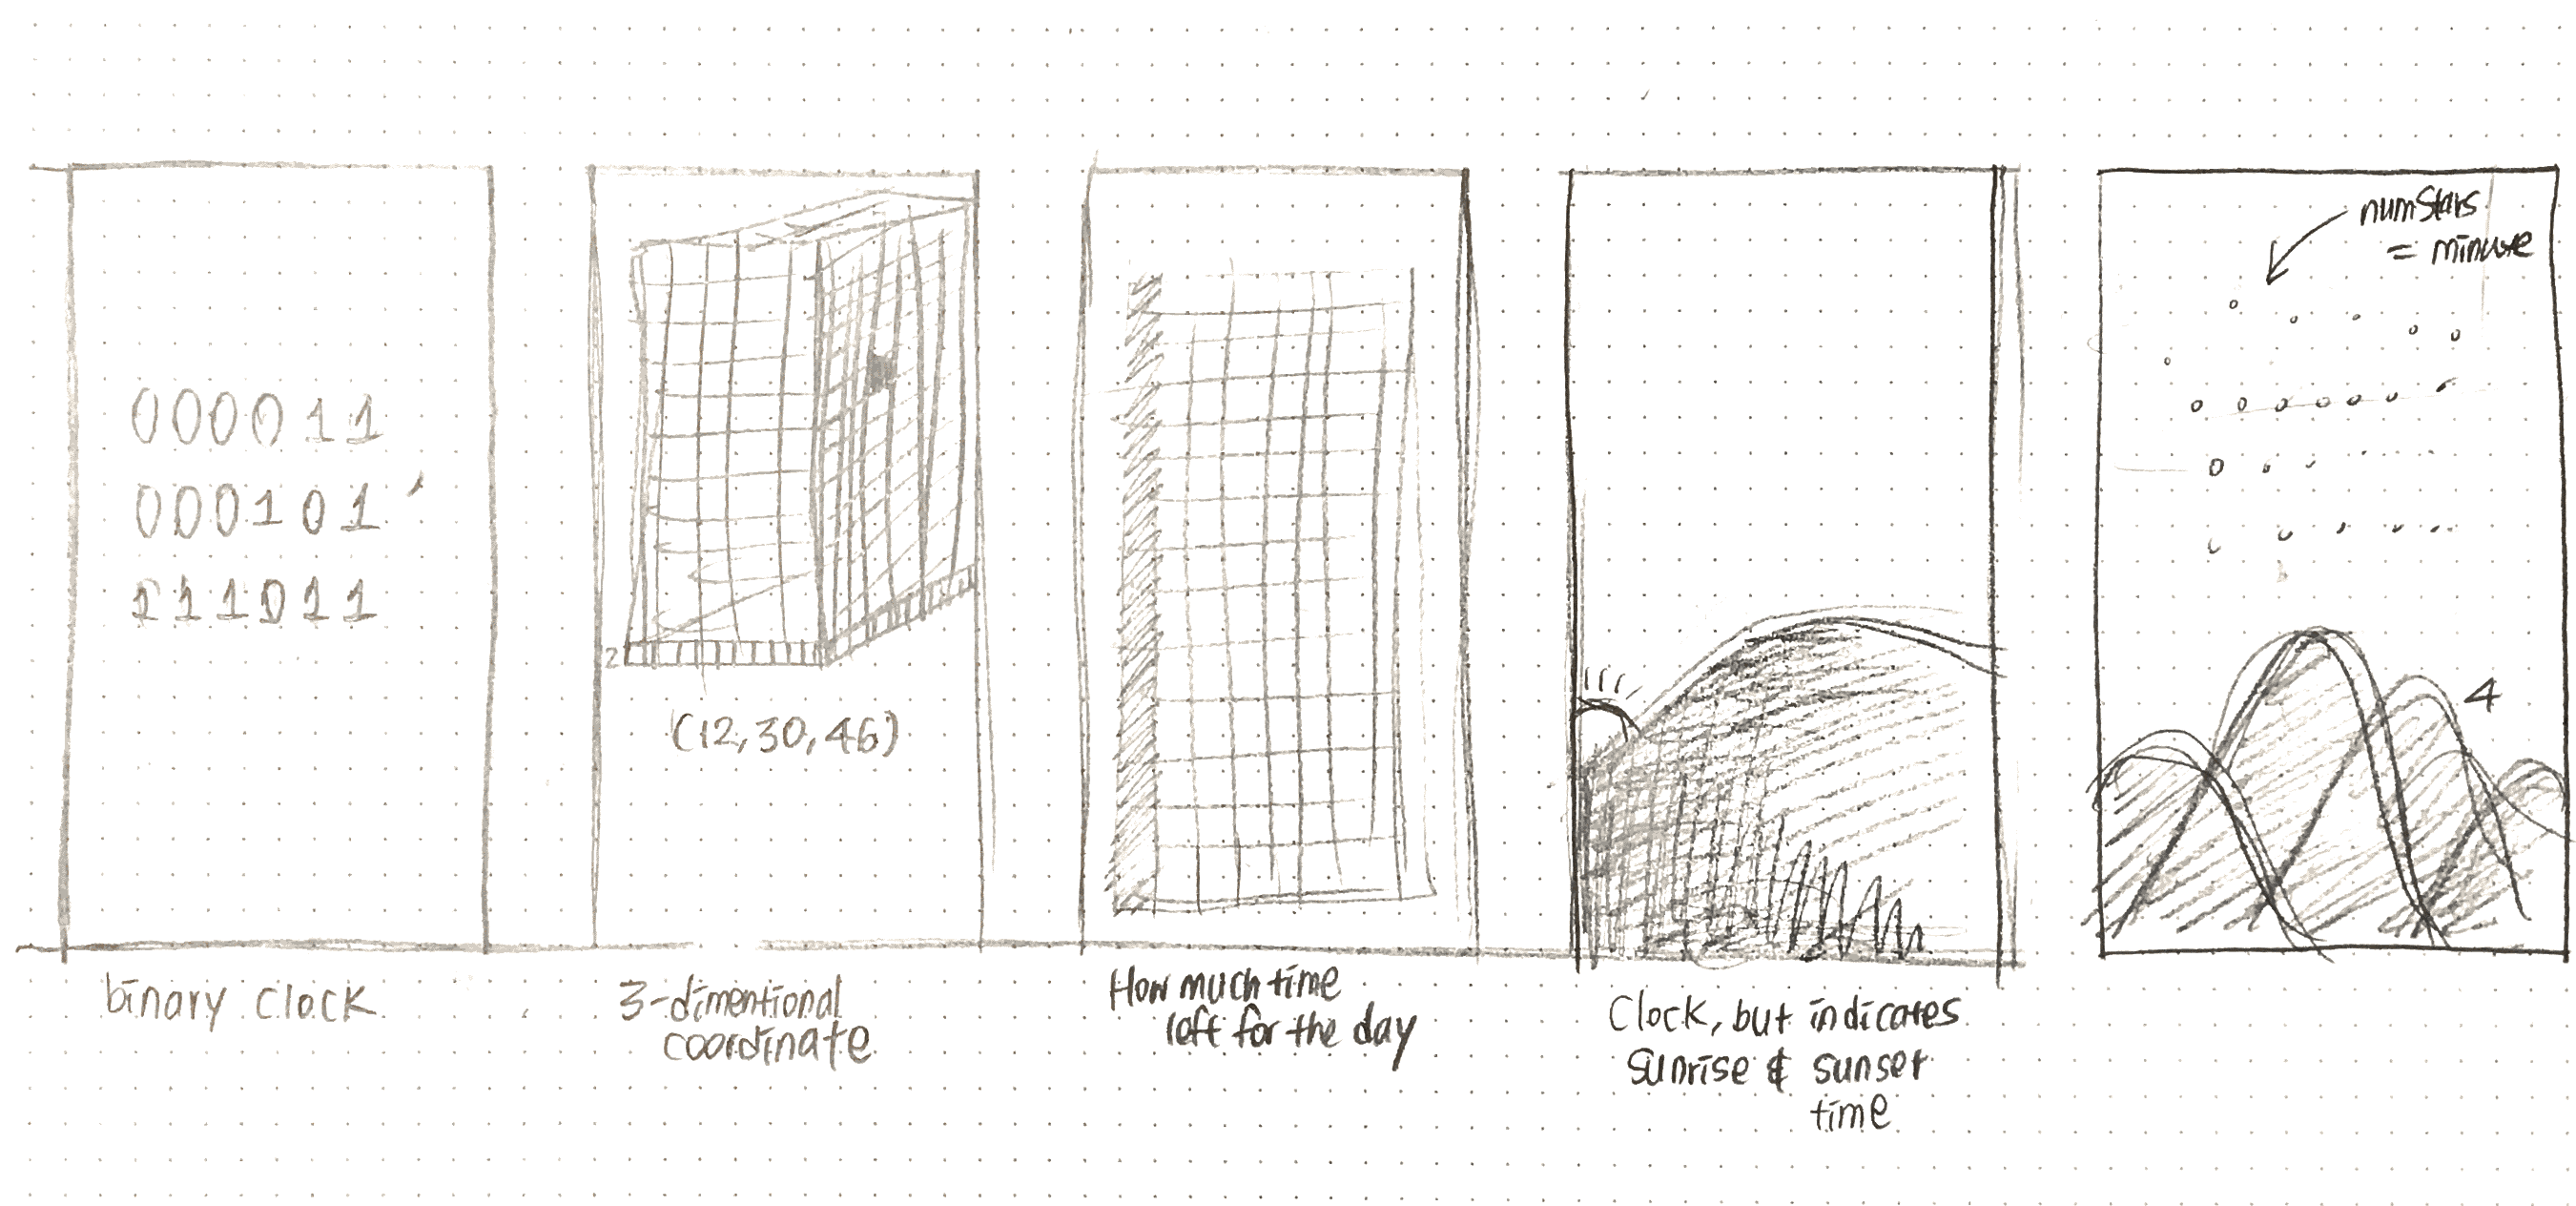 000011
000101
111011
binary clock
2
(12,30,46)
3-dimentional
coordinate
How much time
left for the day
Clock, but indicates
sunrise & sunset
time
numStars
= minute
4